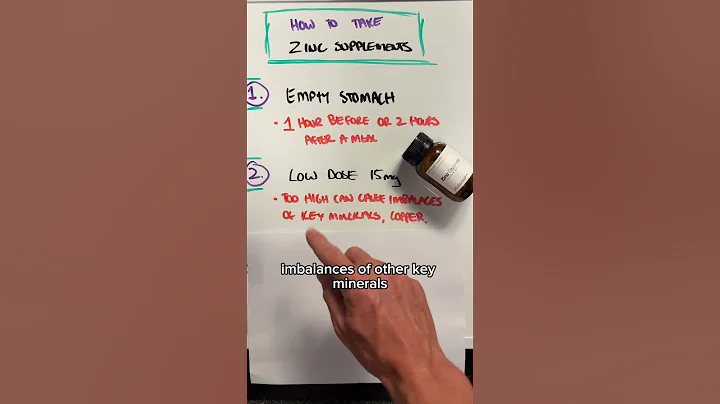 HOW TO TAKE
ZINC SUPPLEMENTS
1. EMPTY STOMACH
• 1 HOUR BEFORE OR 2 HOURS
AFTER A MEAL
2. LOW DOSE 15mg
• TOO HIGH CAN CAUSE IMBALACES
OF KEY MINERALS, COPPER.
imbalances of other key
minerals
Zinc